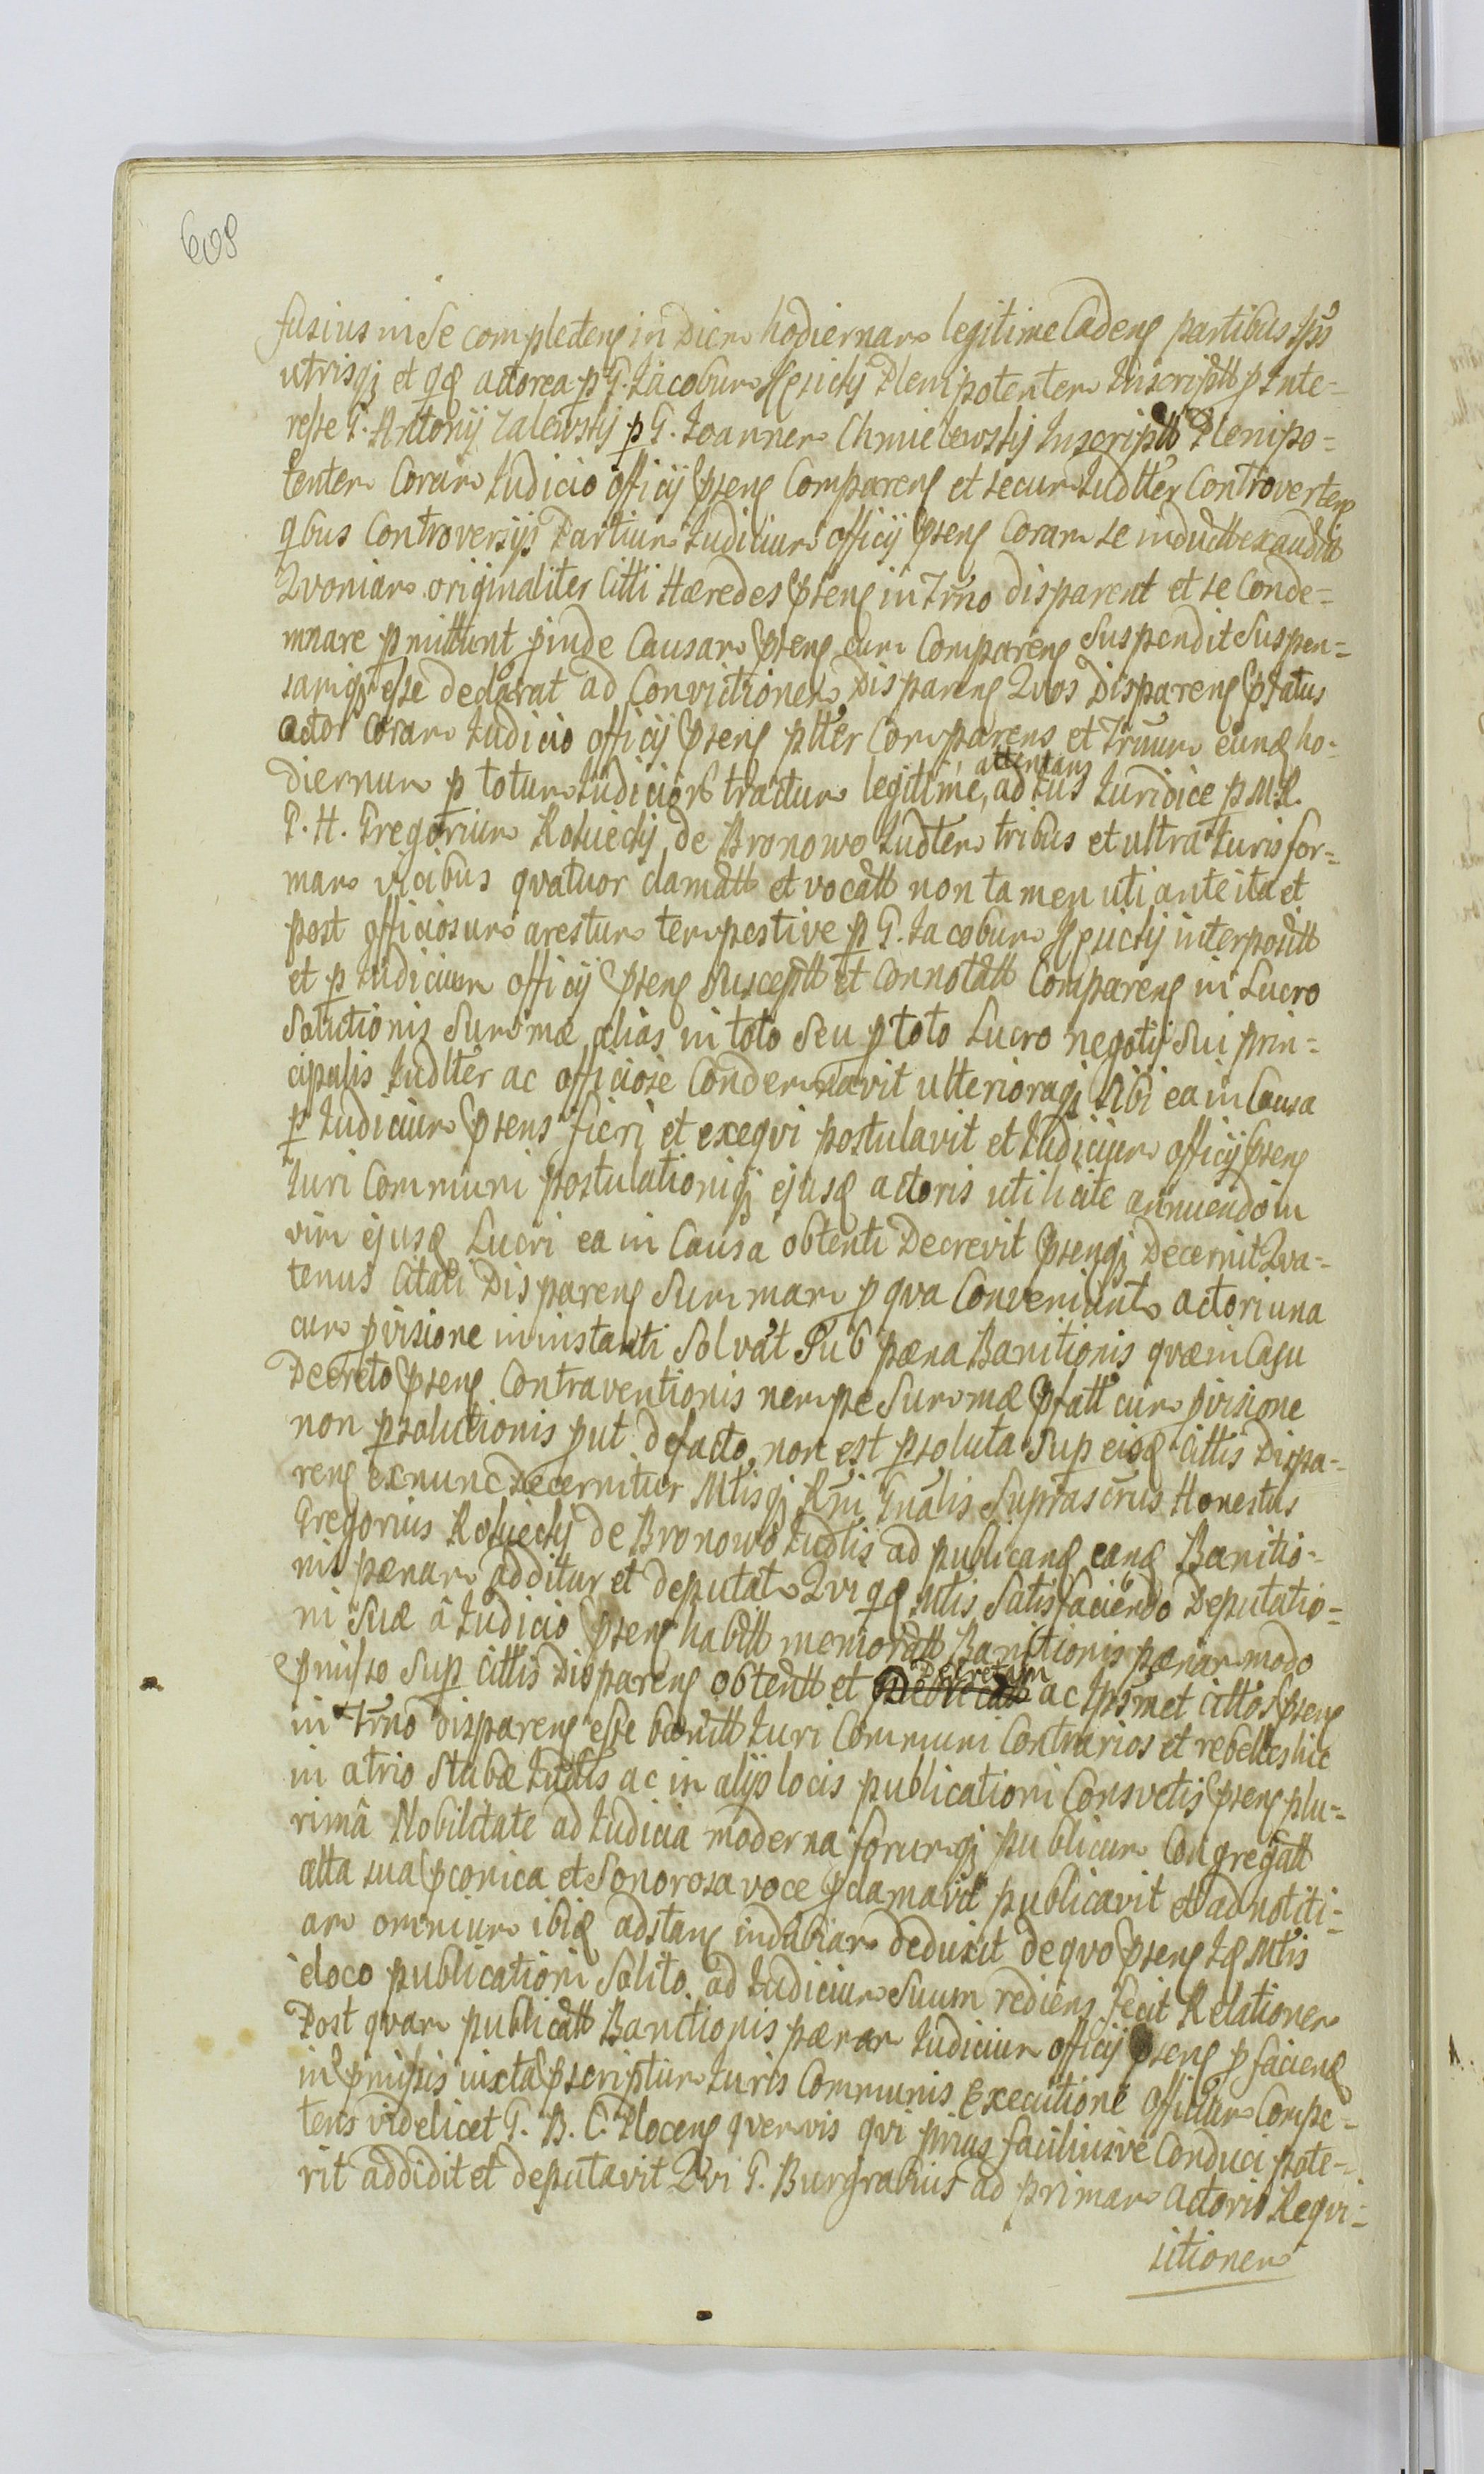 608
fusius in se complecten in Diem hodiernam legitime Caden partibus Ipis
utrisq et qd actorea p G. Jacobum Plenipotentem Inscriptt p Inte=
resse G. Antonij Zalewskj p G. Joannem Chmielewskj Inscriptt Plenipo=
tentem Coram Judicio officij psens Comparen et secum Judtter Controverten
qbus Controversijs Partium Judicium officij psens Coram se inductt exauditt
Qvoniam originaliter Citti Hæredes psens in Trno disparent et se Conde=
mnare pmittunt pinde Causam psens cum Comparen Suspendit Suspen=
samq esse declarat ad Convictionem Disparen Qvos Disparen pfatus
actor Coram Judicio officij psens ptter Comparens et Trnum eund ho=
diernum p totum Judicior tractum legitime, attentans ad Jus Juridice p M. R.
G. H. Gregorium de Bronowo Judtem tribus et ultra Juris for=
mam vicibus qvatuor clamatt et vocatt non tamen uti ante ita et
post officiosum arestum tempestive p G. Jacobum interpositt
et p Judicium officij psens susceptt et Connotatt Comparen in Lucro
Solutionis Summæ alias in toto Seu p toto Lucro negotij Sui prin=
cipalis Judtter ac officiose Condemnavit ulterioraq sibi ea in Causa
p Judicium psens fieri et exeqvi postulavit et Judicium officij psens
Juri Communi postulationiq ejusd actoris uti licite annuendo in
vim ejusd Lucri ea in Causa obtenti Decrevit psensq Decernit Qva=
tenus Citati Disparen Summam p qva Conveniunt actori una
cum pvisione in instanti Solvat Sub pæna Banitionis qvæ in Casu
Decreto psens Contraventionis nempe Summæ pfatt cum pvisione
non psolutionis put defacto non est psoluta Sup eisd Cittis Dispa=
ren exnunc Decernitur Mtisq Rni Gnalis Suprascrus Honestus
Gregorius de Bronowo Judtis ad publicand eand Banitio=
nis pænam additur et deputat Qvi qd Mtis Satisfaciendo Deputatio=
ni Suæ â Judicio psens habitt memoratt Banitionis pænam modo
pmisso Sup Cittis Disparen obtentt et Decretam ac Ipsmet Cittos psens
in Trno disparen esse banitt Juri Communi Contrarios et rebelles hic
in atrio Stubæ Judtis ac in alijs locis publicationi Consvetis psens plu=
rimâ Nobilitate ad Judicia moderna forumq publicum Congregatt
alta sua pconica et Sonorosa voce pclamavit publicavit et ad notiti=
am omnium ibid adstan indubiam deduxit de qvo psens Id Mtis
è loco publicationi Solito ad Judicium Suum rediens fecit Relationem
Post qvam publicatt Banitionis pænam Judicium officij psens p faciend
in pmissis iuxta pscriptum Juris Communis Executione Officium Compe=
tens videlicet G. B. C. Plocens qvemvis qvi prius faciliusve Conduci pote=
rit addidit et deputavit Qvi G. Burgrabius ad primam actoris Reqvi=
sitionem